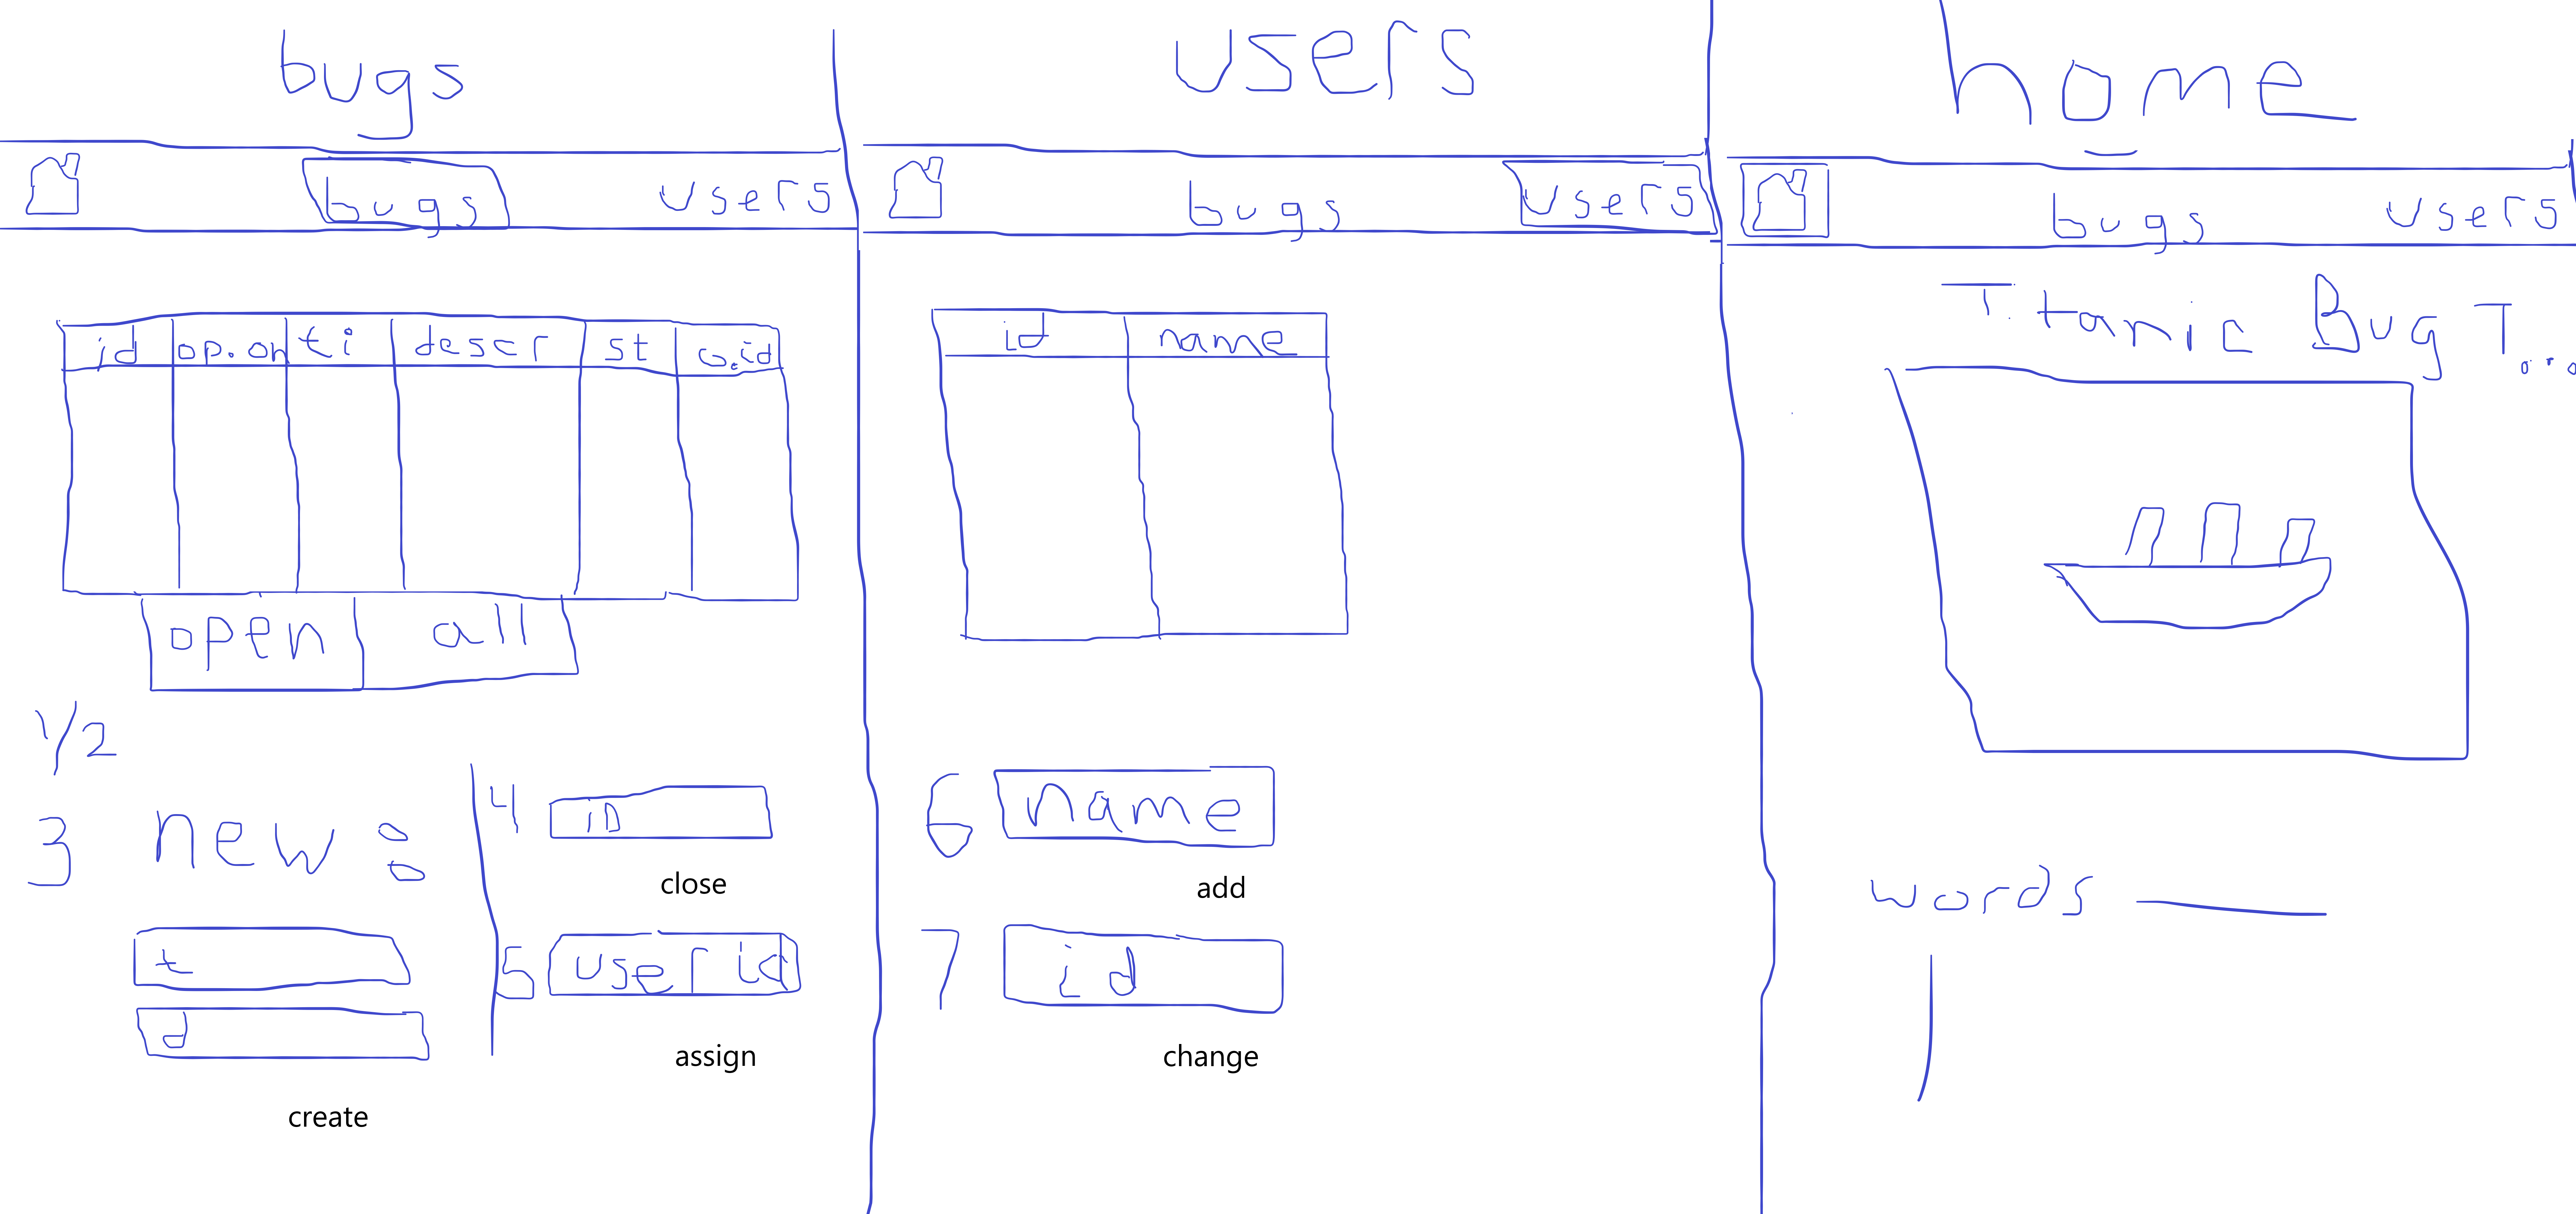 bugs
bugs users
id op.on ti descr st u.id
open all
1/2
3 new:
t
d
create
4 ID
close
5 user id
assign
users
bugs users
id name
6 name
add
7 id
change
home
bugs users
Titanic Bug T...
words